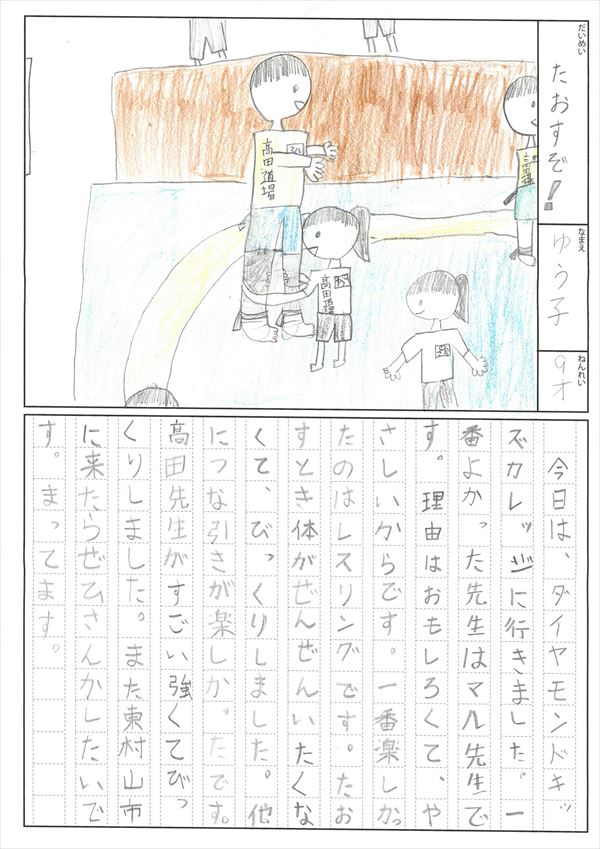 だいめい
たおすぞ！
なまえ
ゆう子
ねんれい
9才
高田道場
マル
高田道場
今日は、ダイヤモンドキッ
ズカレッジに行きました。一
番よかった先生はマル先生で
す。理由はおもしろくて、や
さしいからです。一番楽しかっ
たのはレスリングです。たお
すとき体がぜんぜんいたくな
くて、びっくりしました。他
につな引きが楽しかったです。
高田先生がすごい強くてびっ
くりしました。また東村山市
に来たらぜひさんかしたいで
す。まってます。